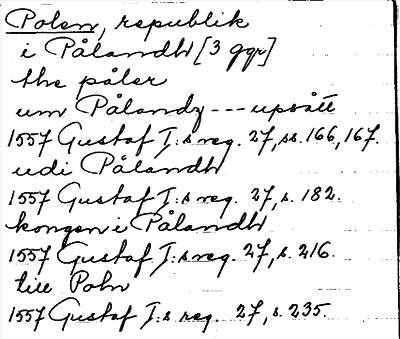 Polen, republik
i Pålandh [3 ggr]
the påler
um Pålandz --- upsått
1557 Gustaf I:s reg. 27, ss. 166, 167.
udi Pålandh
1557 Gustaf I:s reg. 27, s. 182.
kongen i Pålandh
1557 Gustaf I:s reg. 27, s. 216.
till Poln
1557 Gustaf I:s reg. 27, s. 235.